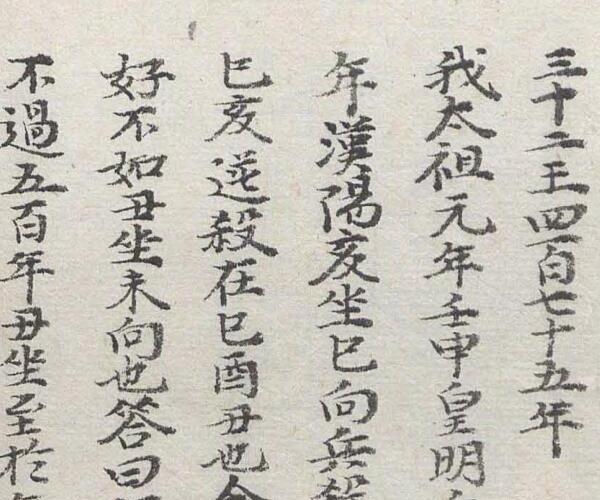 三十二王四百七十五年
我太祖元年壬申皇明
年漢陽亥坐巳向兵殺
巳亥逆殺在巳酉丑也
好不如丑坐未向也答曰
不過五百年丑坐至於